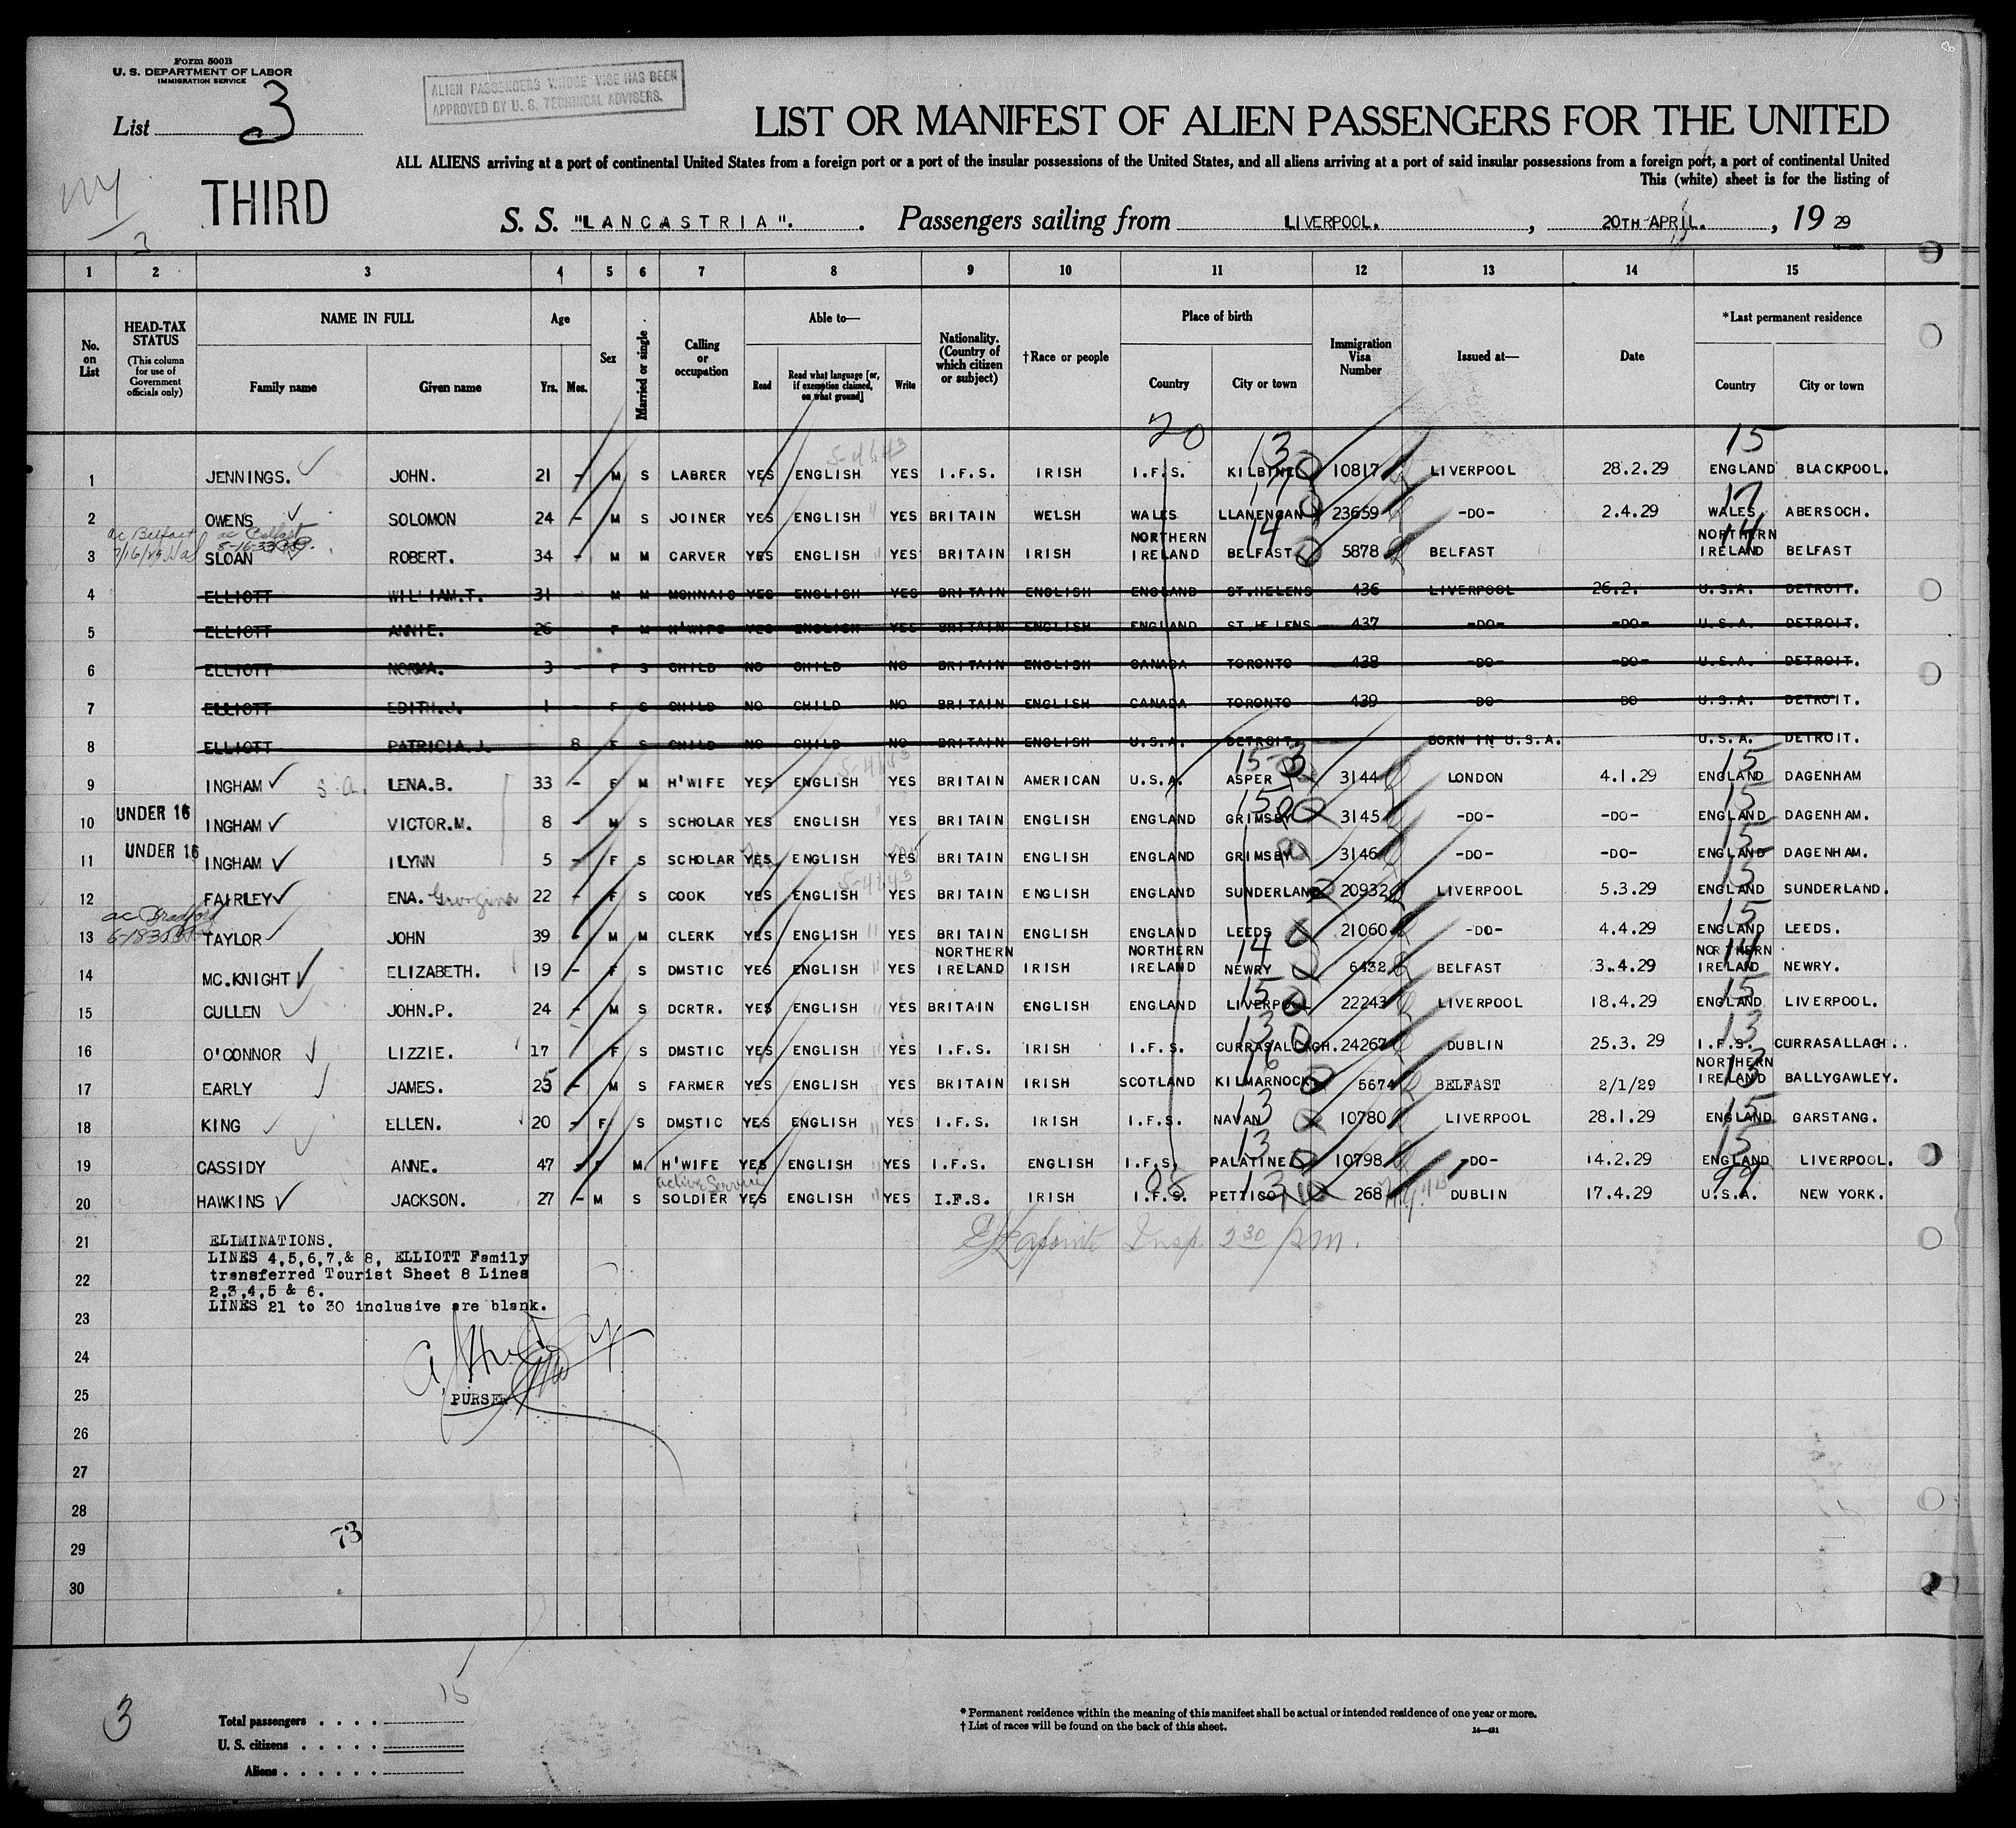 Form 500B
U. S. DEPARTMENT OF LABOR
IMMIGRATION SERVICE
ALIEN PASSENGERS WHOSE VICE HAS BEEN
APPROVED BY U. S. TECHNICAL ADVISERS.
List 3
LIST OR MANIFEST OF ALIEN PASSENGERS FOR THE UNITED
ALL ALIENS arriving at a port of continental United States from a foreign port or a port of the insular possessions of the United States, and all aliens arriving at a port of said insular possessions from a foreign port, a port of continental United
This (white) sheet is for the listing of
THIRD
3
S. S. "LANCASTRIA". Passengers sailing from LIVERPOOL. , 20TH APRIL. , 19 29
1 2 3 4 5 6 7 8 9 10 11 12 13 14 15
No. on List
HEAD-TAX STATUS
(This column for use of Government officials only)
NAME IN FULL
Family name Given name
Age
Yrs. Mos.
Sex
Married or single
Calling or occupation
Able to—
Read
Read what language [or, if exemption claimed, on what ground]
Write
Nationality. (Country of which citizen or subject)
†Race or people
Place of birth
Country City or town
Immigration Visa Number
Issued at—
Date
*Last permanent residence
Country City or town
20 15
5-4643
13
1 JENNINGS. JOHN. 21 - M S LABRER YES ENGLISH YES I.F.S. IRISH I.F.S. KILBINE 10817 LIVERPOOL 28.2.29 ENGLAND BLACKPOOL.
17 17
2 OWENS SOLOMON 24 - M S JOINER YES ENGLISH YES BRITAIN WELSH WALES LLANENGAN 23659 -DO- 2.4.29 WALES ABERSOCH.
ac Belfast ac Belfast
7/16/29 8-16-33
14 14
3 SLOAN ROBERT. 34 - M M CARVER YES ENGLISH YES BRITAIN IRISH NORTHERN IRELAND BELFAST 5878 BELFAST NORTHERN IRELAND BELFAST
4 ELLIOTT WILLIAM.T. 31 M M MCHNAIC YES ENGLISH YES BRITAIN ENGLISH ENGLAND ST.HELENS 436 LIVERPOOL 26.2. U.S.A. DETROIT.
5 ELLIOTT ANNIE. 26 F M H'WIFE YES ENGLISH YES BRITAIN ENGLISH ENGLAND ST.HELENS 437 -DO- -DO- U.S.A. DETROIT.
6 ELLIOTT NORMA. 3 - F S CHILD NO CHILD NO BRITAIN ENGLISH CANADA TORONTO 438 -DO- -DO- U.S.A. DETROIT.
7 ELLIOTT EDITH.J. 1 - F S CHILD NO CHILD NO BRITAIN ENGLISH CANADA TORONTO 439 DO DO U.S.A. DETROIT.
8 ELLIOTT PATRICIA.J. 8 F S CHILD NO CHILD NO BRITAIN ENGLISH U.S.A. DETROIT BORN IN U.S.A. U.S.A. DETROIT.
15 3 15
9 INGHAM S.A. LENA.B. 33 - F M H'WIFE YES ENGLISH YES BRITAIN AMERICAN U.S.A. ASPER 3144 LONDON 4.1.29 ENGLAND DAGENHAM
15 15
10 UNDER 16 INGHAM VICTOR.M. 8 - M S SCHOLAR YES ENGLISH YES BRITAIN ENGLISH ENGLAND GRIMSBY 3145 -DO- -DO- ENGLAND DAGENHAM.
15
11 UNDER 16 INGHAM ILYNN 5 - F S SCHOLAR YES ENGLISH YES BRITAIN ENGLISH ENGLAND GRIMSBY 3146 -DO- -DO- ENGLAND DAGENHAM.
15
12 FAIRLEY ENA. Georgina 22 - F S COOK YES ENGLISH YES BRITAIN ENGLISH ENGLAND SUNDERLAND 20932 LIVERPOOL 5.3.29 ENGLAND SUNDERLAND.
ac Bradford
15
13 TAYLOR JOHN 39 - M M CLERK YES ENGLISH YES BRITAIN ENGLISH ENGLAND LEEDS 21060 -DO- 4.4.29 ENGLAND LEEDS.
14 14
14 MC.KNIGHT ELIZABETH. 19 - F S DMSTIC YES ENGLISH YES NORTHERN IRELAND IRISH NORTHERN IRELAND NEWRY 6432 BELFAST 3.4.29 NORTHERN IRELAND NEWRY.
15 15
15 CULLEN JOHN.P. 24 - M S DCRTR. YES ENGLISH YES BRITAIN ENGLISH ENGLAND LIVERPOOL 22243 LIVERPOOL 18.4.29 ENGLAND LIVERPOOL.
13 13
16 O'CONNOR LIZZIE. 17 F S DMSTIC YES ENGLISH YES I.F.S. IRISH I.F.S. CURRASALLAGH. 24267 DUBLIN 25.3. 29 I.F.S. CURRASALLAGH..
16 13
17 EARLY JAMES. 25 - M S FARMER YES ENGLISH YES BRITAIN IRISH SCOTLAND KILMARNOCK 5674 BELFAST 2/1/29 NORTHERN IRELAND BALLYGAWLEY.
13 15
18 KING ELLEN. 20 - F S DMSTIC YES ENGLISH YES I.F.S. IRISH I.F.S. NAVAN 10780 LIVERPOOL 28.1.29 ENGLAND GARSTANG.
13 15
19 CASSIDY ANNE. 47 - F M H'WIFE YES ENGLISH YES I.F.S. ENGLISH I.F.S. PALATINE 10798 -DO- 14.2.29 ENGLAND LIVERPOOL.
active Service
08 13 99
20 HAWKINS JACKSON. 27 - M S SOLDIER YES ENGLISH YES I.F.S. IRISH I.F.S. PETTIGO 268 DUBLIN 17.4.29 U.S.A. NEW YORK.
21 ELIMINATIONS.
Insp. 2 30 pm.
LINES 4,5,6,7,& 8, ELLIOTT Family
22 transferred Tourist Sheet 8 Lines
2,3,4,5 & 6.
LINES 21 to 30 inclusive are blank.
23
24
25 PURSER
26
27
28
73
29
30
15
3
Total passengers
U. S. citizens
Aliens
* Permanent residence within the meaning of this manifest shall be actual or intended residence of one year or more.
† List of races will be found on the back of this sheet.
14—481